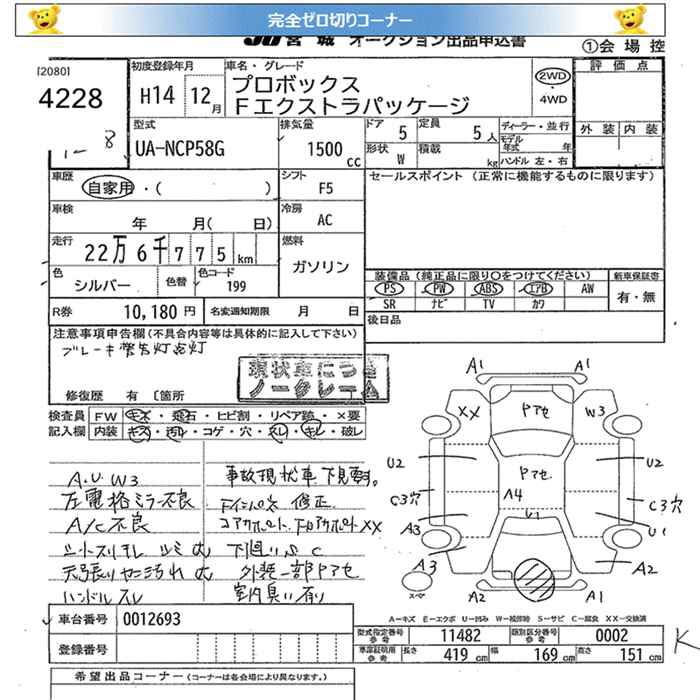 完全ゼロ切りコーナー
JU宮城 オークション出品申込書
①会場控
[2080]
4228
初度登録年月
H14 12月
車名・グレード
プロボックス
Fエクストラパッケージ
2WD
・
4WD
評価点
外装 内装
型式
UA-NCP58G
排気量
1500 cc
ドア 5
定員 5人
形状 W
積載 kg
ディーラー・並行
モデル年式 年
ハンドル 左・右
8
車歴
自家用・( )
シフト
F5
セールスポイント (正常に機能するものに限ります)
車検
年 月( 日)
冷房
AC
走行
22万6千775km
燃料
ガソリン
色
シルバー
色替
色コード
199
装備品 (純正品に限り○をつけてください)
PS PW ABS エアB AW
SR ナビ TV カワ
新車保証書
有・無
R券 10,180円
名変通知期限 月 日
後日品
注意事項申告欄(不具合内容等は具体的に記入して下さい)
ブレーキ警告灯点灯
現状車につき
ノークレーム
修復歴 有 〔箇所
検査員
記入欄
FW キズ・飛石・ヒビ割・リペア跡・×要
内装 キズ・汚レ・コゲ・穴・スレ・キレ・破レ
A.U W3
左電格ミラー不良
A/C不良
天張りヤニ汚れ
ハンドルスレ
事故現状車 下見要す。
修正
コアサポート XX
下廻り S C
外装一部Pアセ
室内臭い有り
A1
A1
XX
Pアセ
W3
U2
Pアセ
U2
C3穴
A4
C3穴
U1
A3
U1
A3
A2
スペア
A2
A1
A-キズ E-エクボ U-凹み W-補修跡 S-サビ C-腐食 XX-交換済
車台番号 0012693
登録番号
型式指定番号 参考 11482
類別区分番号 参考 0002
車庫証明用 参考
長さ 419cm
幅 169cm
高さ 151cm
K
希望出品コーナー (コーナーは各会場により異なります。)